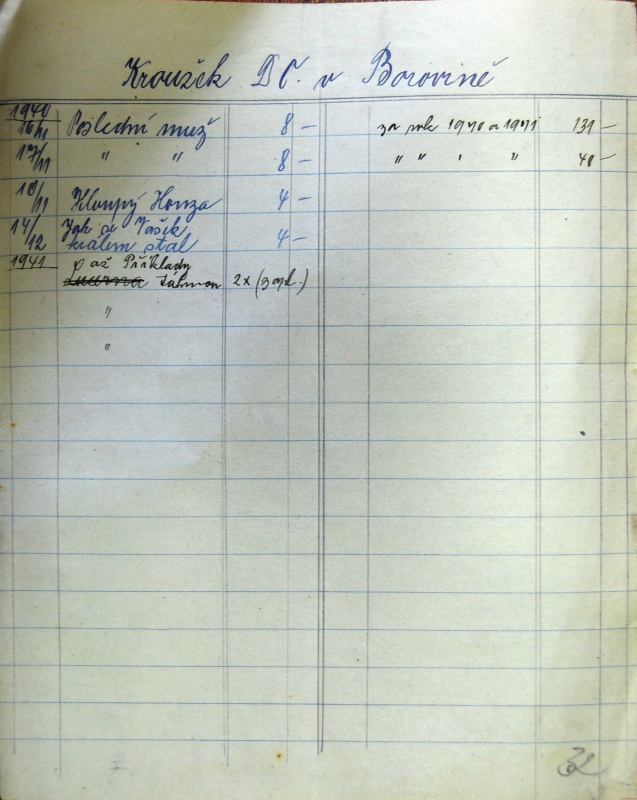 Kroužek DČ. v Borovině
1940
16/11 Poslední muž 8 — za rok 1940 a 1941 131 —
17/11 " " 8 — " " ' " 40 —
10/11 Hloupý Honza 4 —
14/12 Jak se Vašík
králem stal 4 —
1941 p až Příklady
2x
"
"
32